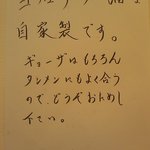 自家製です。
ギョーザはもちろん
タンメンにもよく合う
ので、どうぞおためし
下さい。